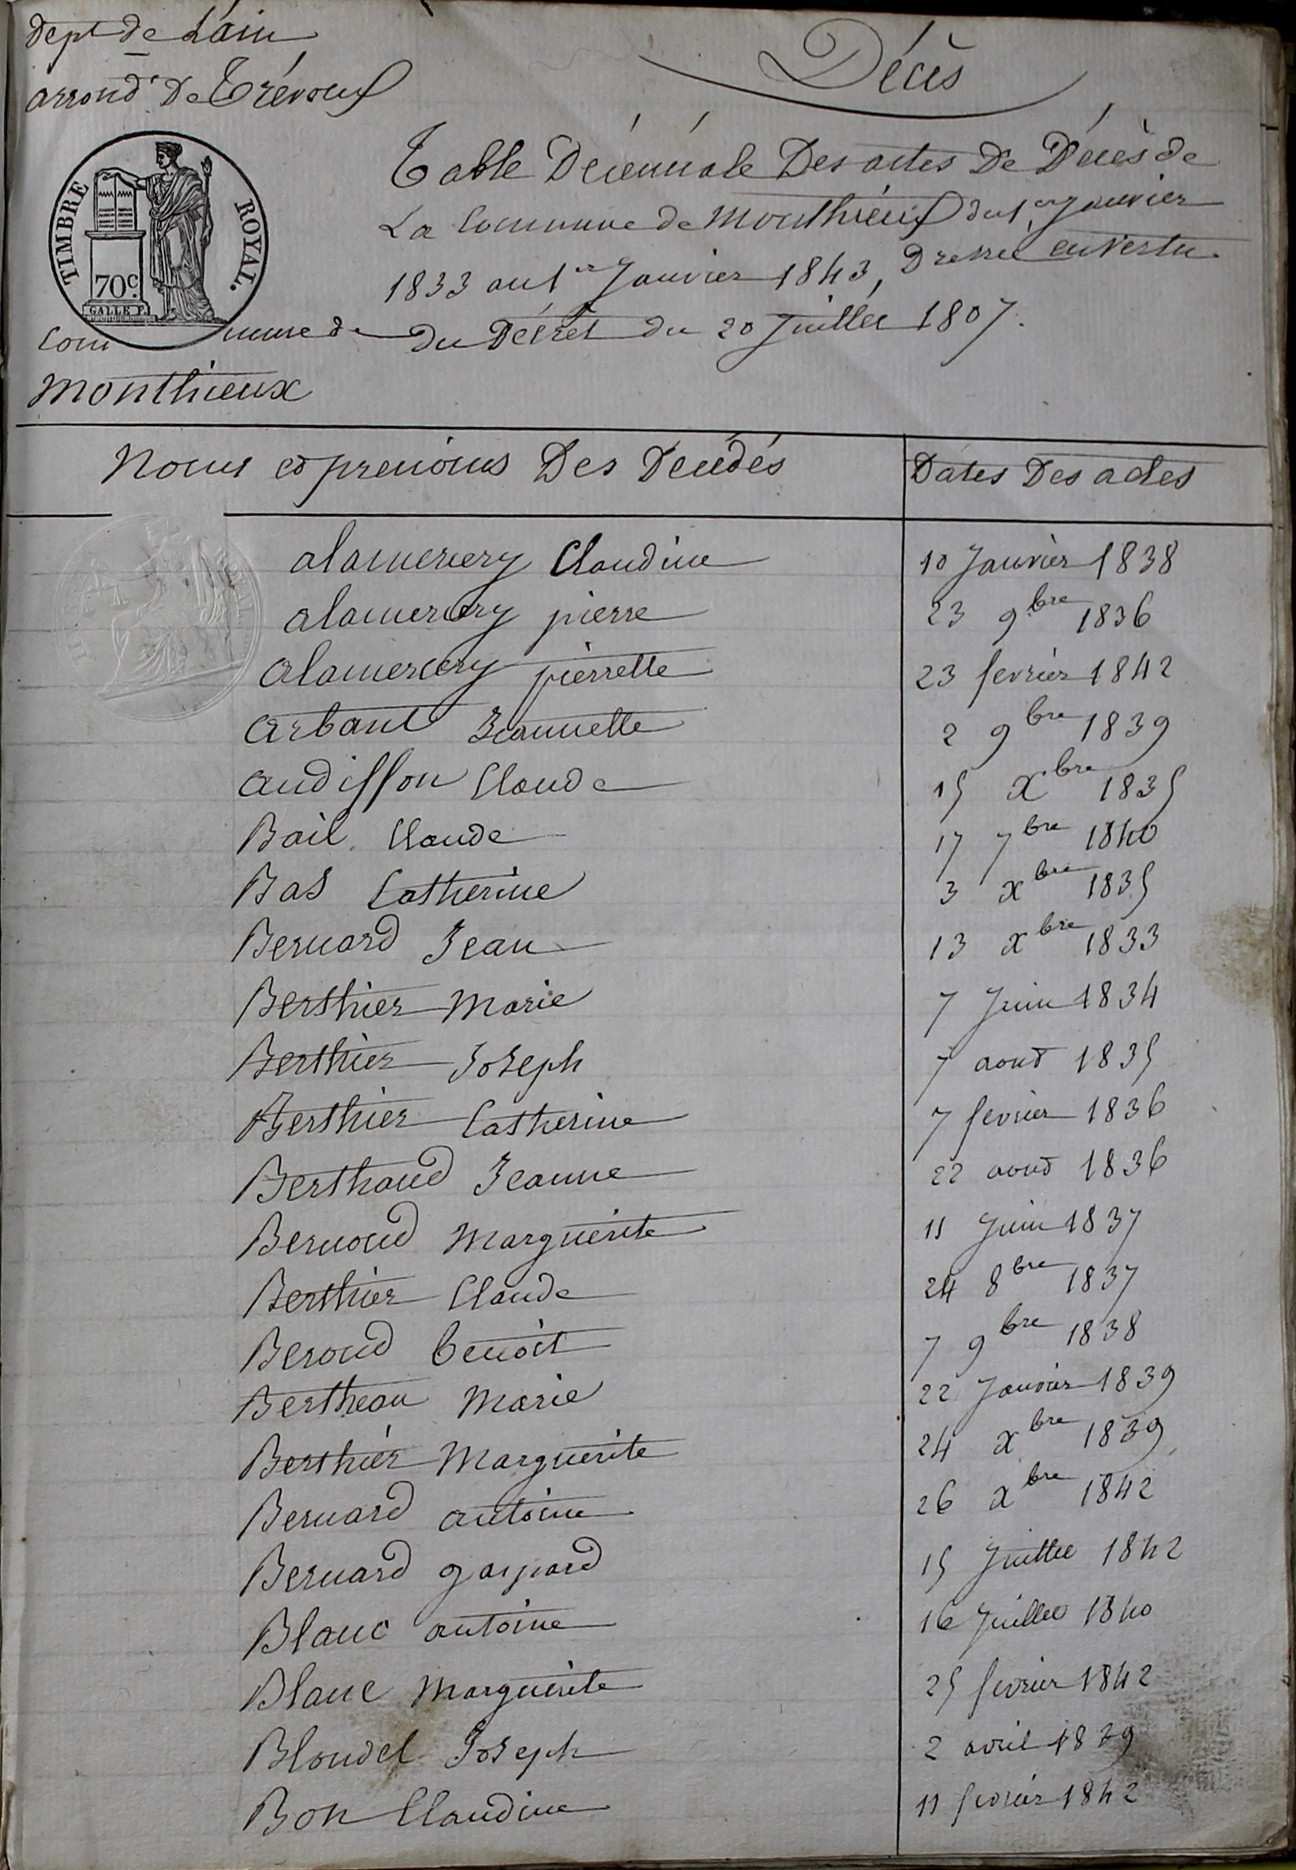 Dept de L'ain
arrondt De Trévoux
Décès
TIMBRE ROYAL.
70c.
Table Décennale Des actes De Décès de
La Commune de Monthieux du 1er Janvier
1833 au 1er Janvier 1843, Dressée en vertu
Du Décret du 20 Juillet 1807.
Commune de
Monthieux
Noms et prenoms Des Décédés Dates Des actes
alamercery Claudine 10 Janvier 1838
alamercery pierre 23 9bre 1836
alamercery pierrette 23 fevrier 1842
arbant Jeannette 2 9bre 1839
audiffon Claude 15 Xbre 1835
Bail Claude 17 7bre 1840
Bas Catherine 3 Xbre 1835
Bernard Jean 13 Xbre 1833
Berthier Marie 7 Juin 1834
Berthier Joseph 7 aout 1835
Berthier Catherine 7 fevrier 1836
Berthaud Jeanne 22 aout 1836
Bernoud Marguerite 11 Juin 1837
Berthier Claude 24 8bre 1837
Beroud benoit 7 9bre 1838
Bertheau Marie 22 Janvier 1839
Berthier Marguerite 24 Xbre 1839
Bernard antoine 26 Xbre 1842
Bernard gaspard 15 Juillet 1842
Blanc antoine 16 Juillet 1840
Blanc Marguerite 25 fevrier 1842
Blondel Joseph 2 avril 1839
Bon Claudine 11 fevrier 1842